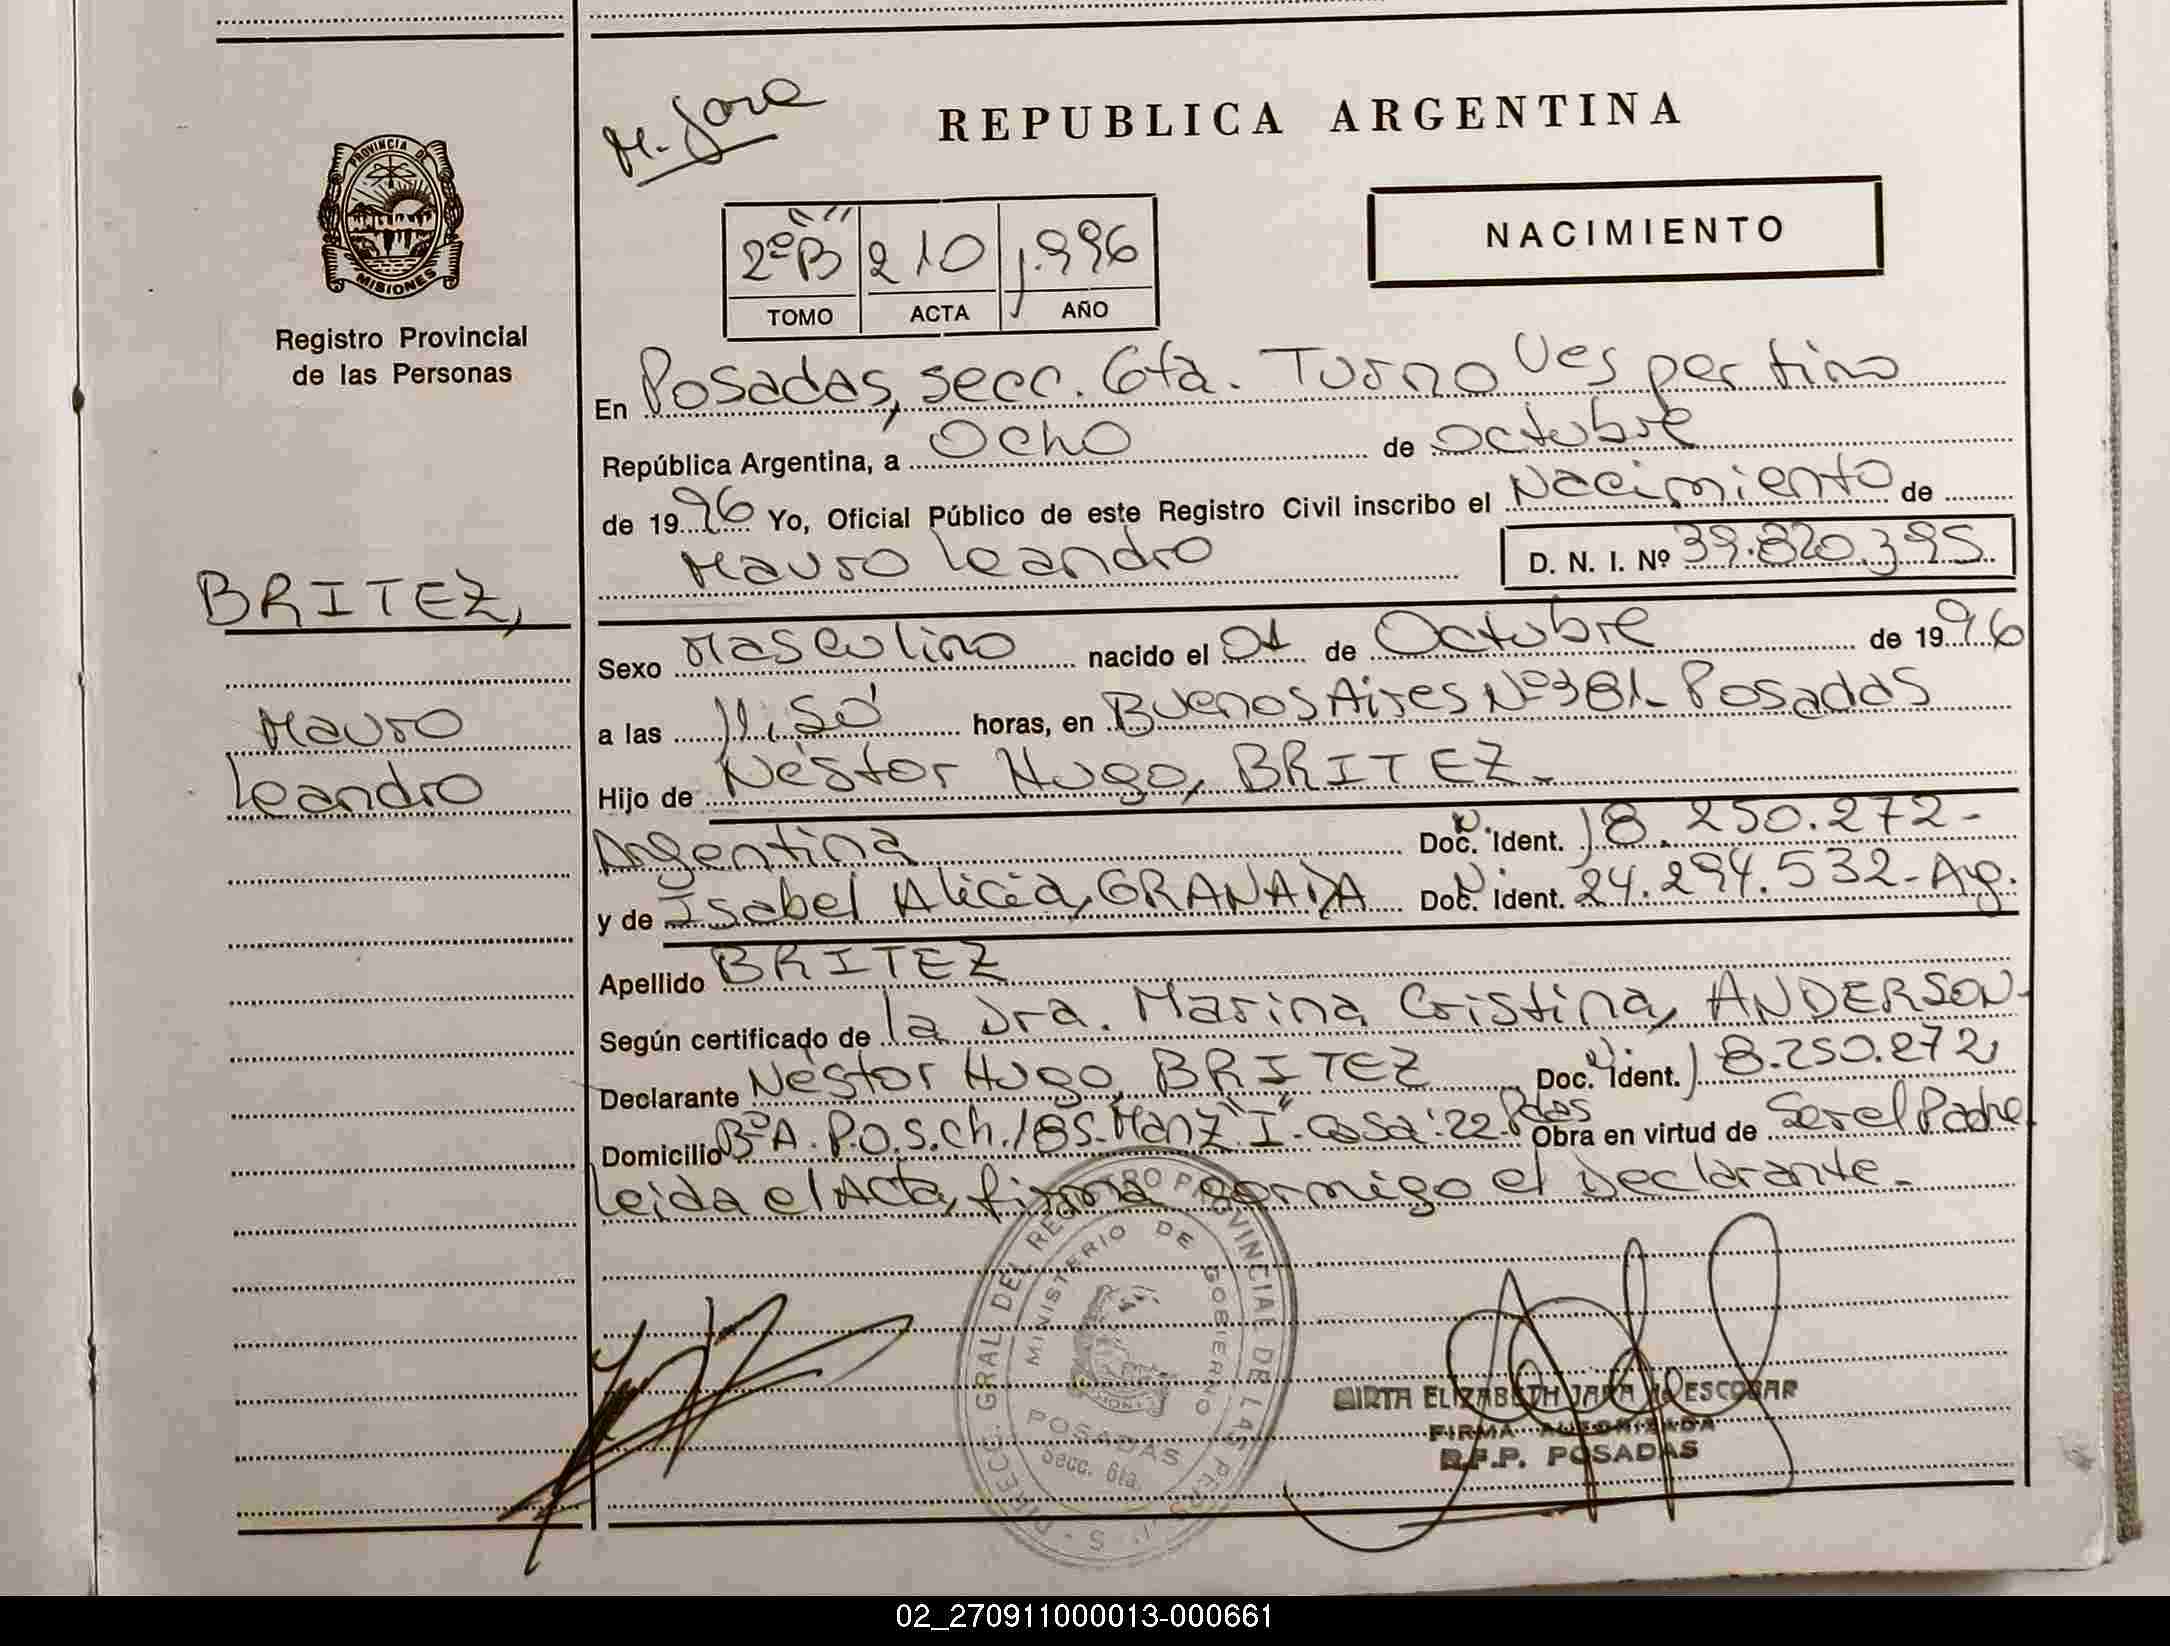 M. Jara
REPUBLICA ARGENTINA
PROVINCIA DE
MISIONES
Registro Provincial
de las Personas
NACIMIENTO
2º"B" 210 1.996
TOMO ACTA AÑO
En Posadas, secc. 6ta. Turno Vespertino
República Argentina, a Ocho de octubre
de 1996 Yo, Oficial Público de este Registro Civil inscribo el Nacimiento de
Mauro Leandro D. N. I. Nº 39.820.395
BRITEZ,
Mauro
Leandro
Sexo Masculino nacido el 01 de Octubre de 1996
a las 11,50' horas, en Buenos Aires Nº 381- Posadas
Hijo de Néstor Hugo, BRITEZ-
Argentina Doc. Ident. 18.250.272-
y de Isabel Alicia, GRANADA Doc. Ident. 24.294.532-Arg.
Apellido BRITEZ
Según certificado de la Dra. Marina Cristina, ANDERSON-
Declarante Néstor Hugo, BRITEZ Doc. Ident. 18.250.272,
Domicilio Bº A.P.O.S.ch.185-Manz"I"-Casa:22-Pdas Obra en virtud de Ser el Padre
Leida el Acta, firma conmigo el Declarante-
DIRECC. GRAL. DEL REGISTRO PROVINCIAL DE LAS PERS.
MINISTERIO DE GOBIERNO
POSADAS
Secc. 6ta.
MIRTA ELIZABETH JARA de ESCOBAR
FIRMA AUTORIZADA
R.P.P. POSADAS
02_270911000013-000661